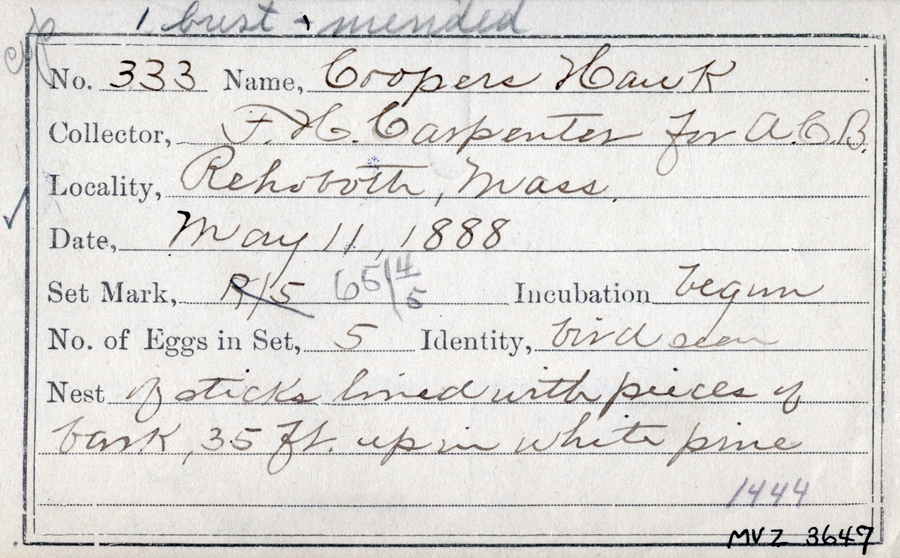 1 bust + mended
No. 333 Name, Coopers Hawk
Collector, F. H. Carpenter for A.C.B.
Locality, Rehoboth, Mass.
Date, May 11, 1888
Set Mark, R/5 65/4/5 Incubation begun
No. of Eggs in Set, 5 Identity, bird seen
Nest of sticks lined with pieces of
bark, 35 ft. up in white pine
1444
MVZ 3647